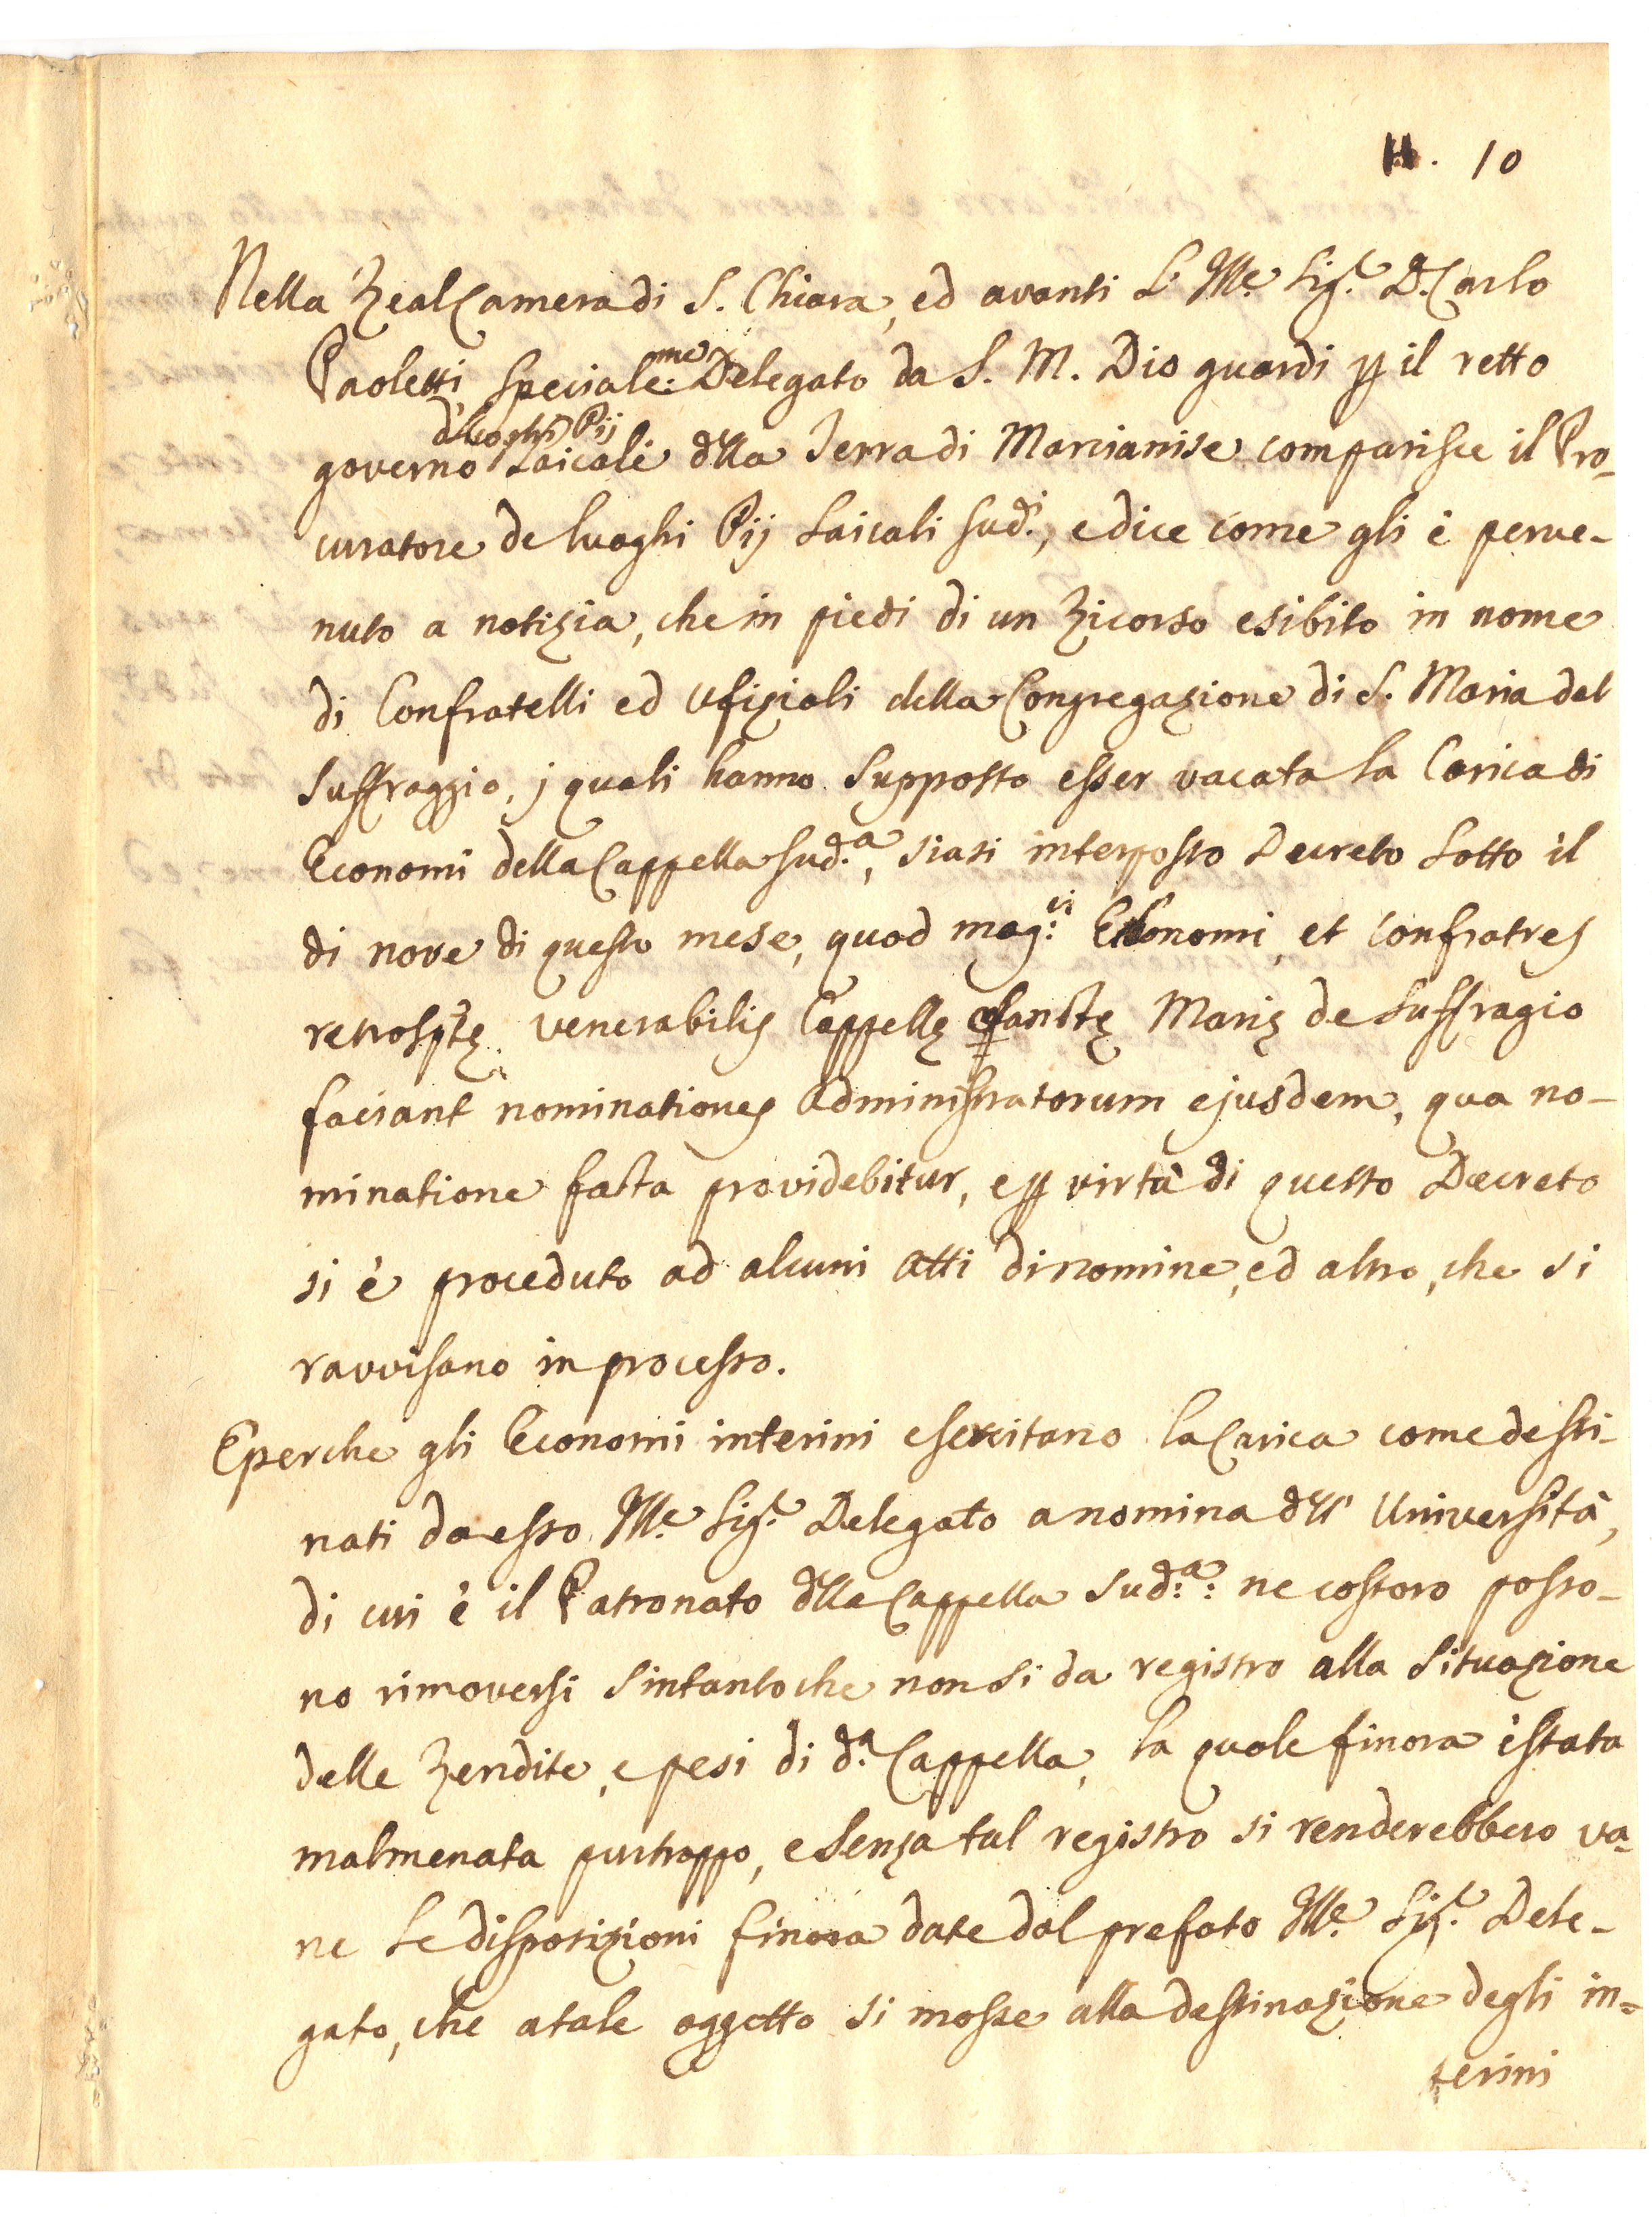 10
Nella Real Camera di S. Chiara, ed avanti l'Ill.e Sig.r D. Carlo
Paoletti, speciale:me Delegato da S. M. Dio guardi p il retto
d'luoghi Pij
governo Laicali dlla Terra di Marcianise comparisce il Pro-
curatore de luoghi Pij Laicali sud.i, e dice come gli è perve-
nuto a notizia, che in piedi di un Ricorso esibito in nome
di Confratelli ed Ufiziali della Congregazione di S. Maria del
Suffraggio, j quali hanno supposto esser vacata la Carica di
Economi della Cappella sud.a, siasi interposto Decreto sotto il
di nove di questo mese, quod mag:ci Economi, et confratres
retrospte venerabilis Cappellę Sanctę Marię de Suffragio
faciant nominationes Administratorum ejusdem, qua no-
minatione facta providebitur, e p virtù di questo Decreto
si è proceduto ad alcuni atti di nomine, ed altro, che si
ravvisano in processo.
E perche gli Economi interini esercitano la Carica come desti-
nati da esso Ill.e Sig.r Delegato a nomina dll' Università,
di cui è il Patronato dlla Cappella sud:a: ne costoro posso-
no rimoversi sintantoche non si da registro alla situazione
delle Rendite, e pesi di d.a Cappella, la quale finora è stata
malmenata purtroppo, e senza tal registro si renderebbero va-
ne le disposizioni finora date dal prefato Ill.e Sig.r Dele-
gato, che a tale oggetto si mosse alla destinazione degli in=
terini